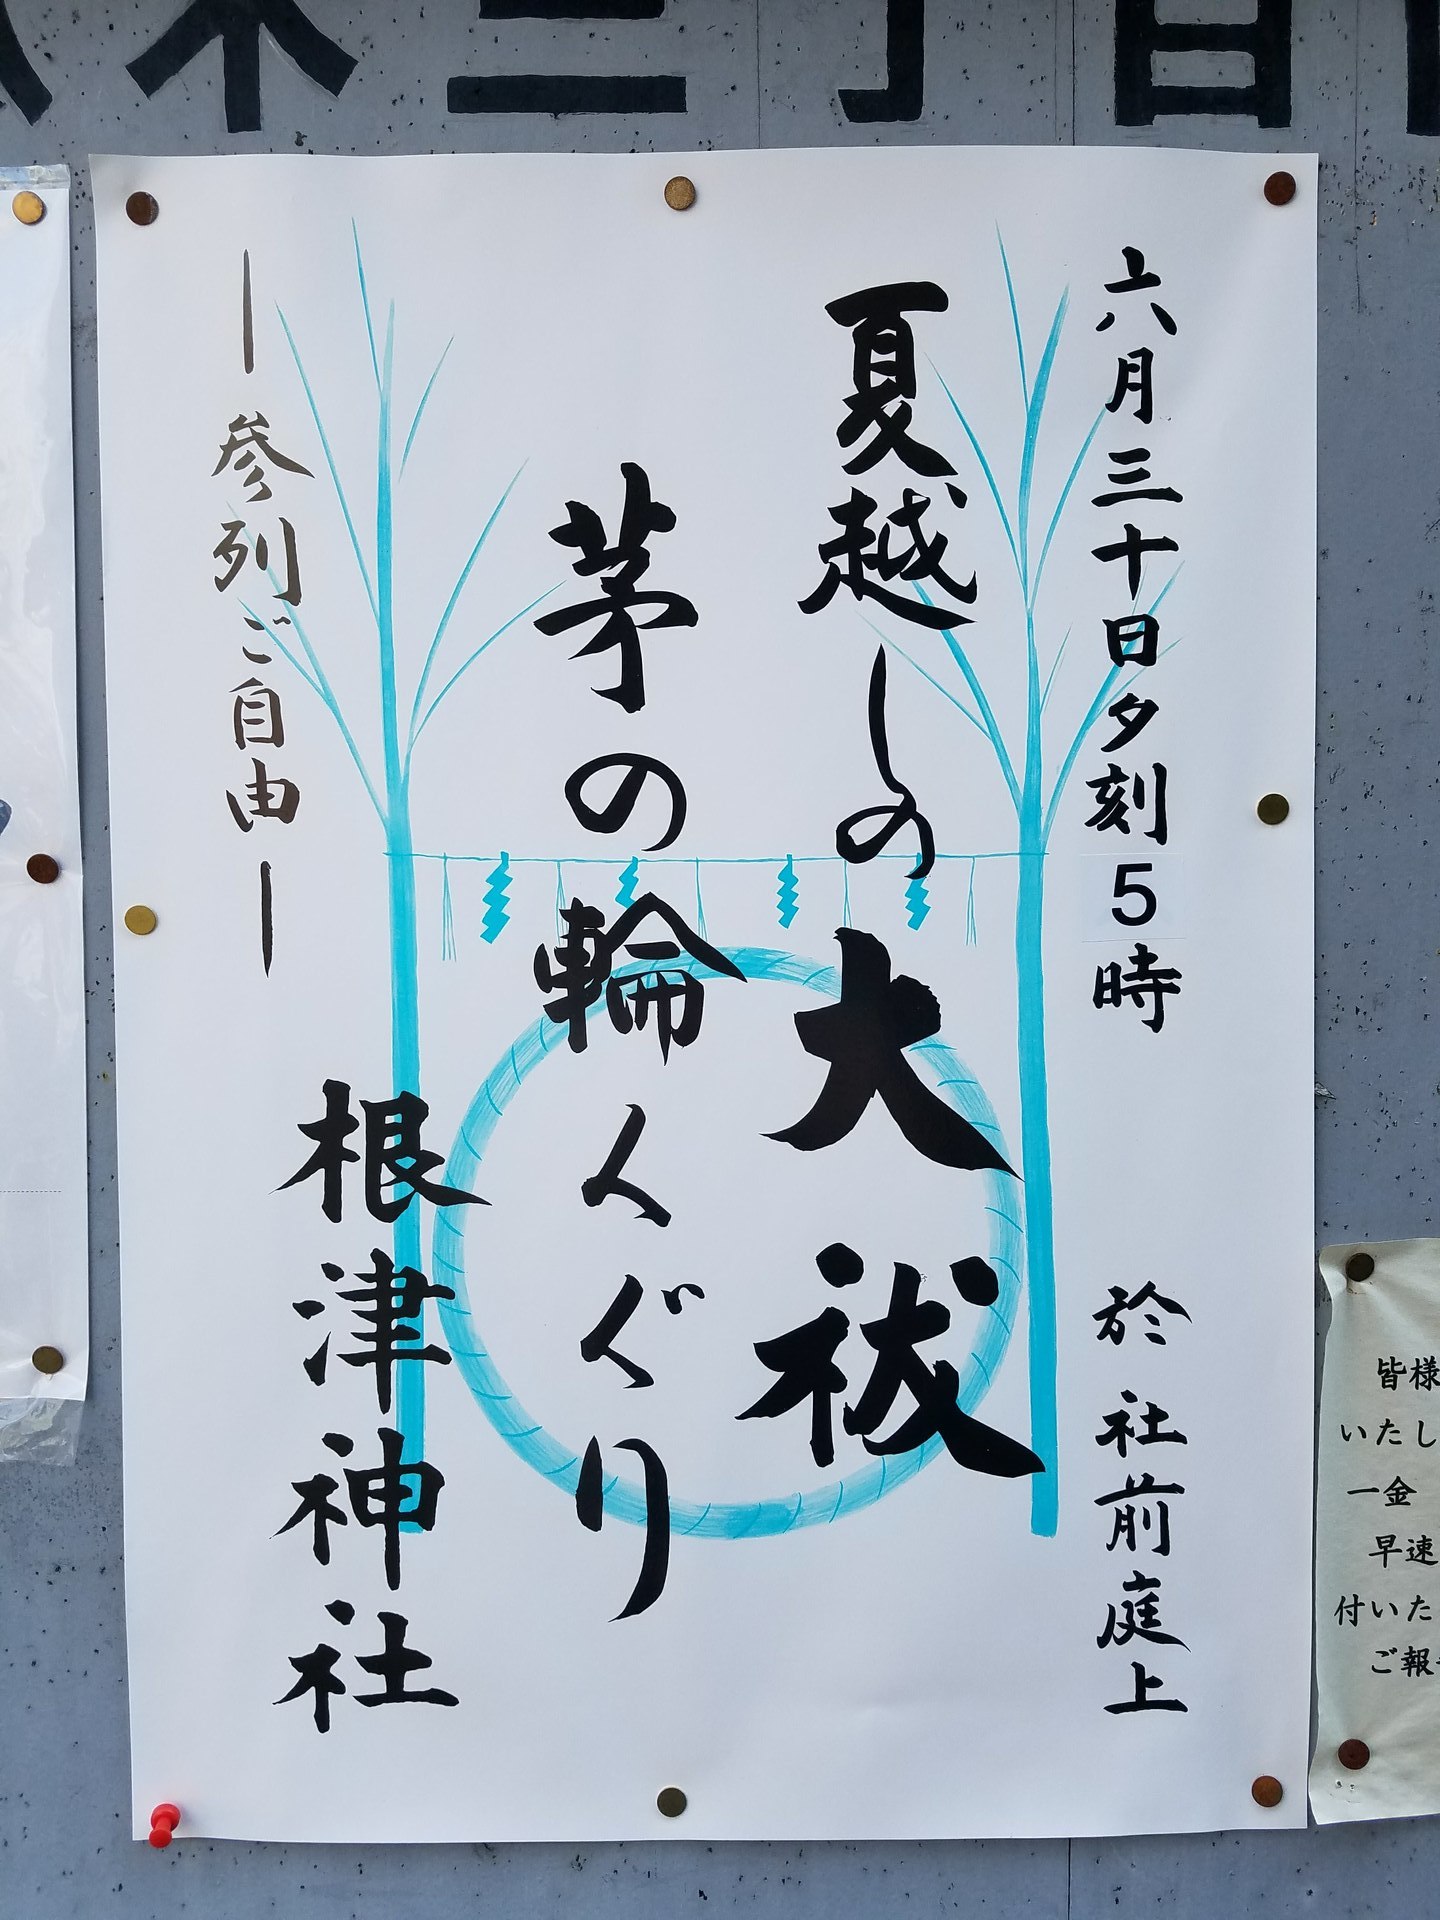 木三丁目
六月三十日夕刻5時　於 社前庭上
夏越しの大祓
茅の輪くぐり
根津神社
―参列ご自由―
皆様
いたし
一金
早速
付いた
ご報